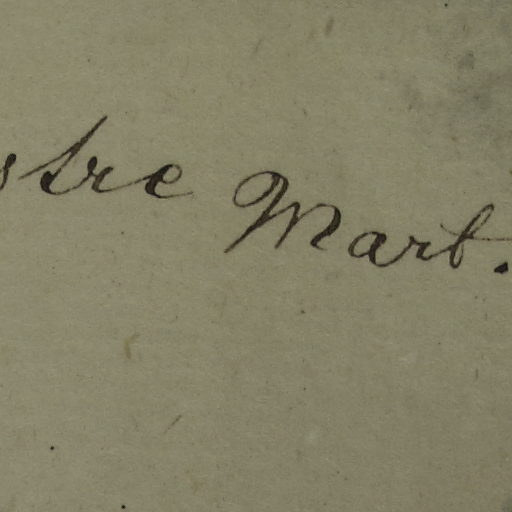 stre Mart.